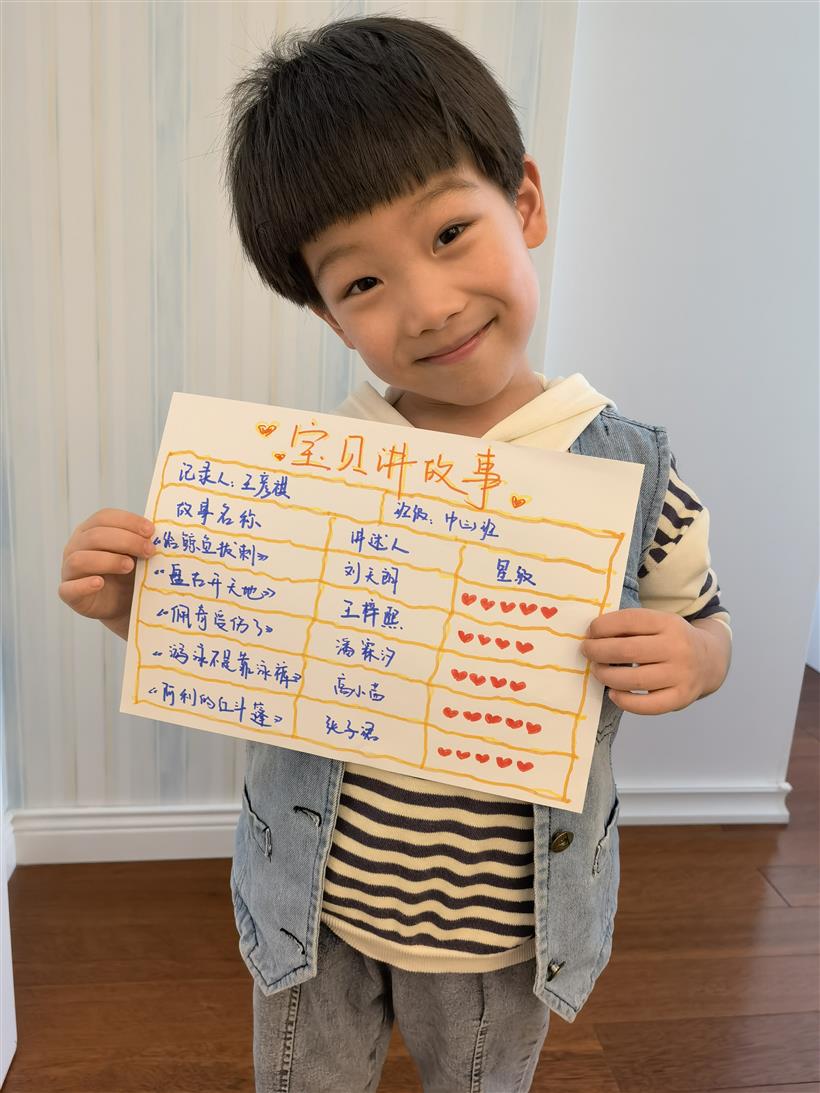 宝贝讲故事
记录人:王彦祺 班级:中(二)班
故事名称 讲述人 星级
《给鲸鱼拔刺》 刘天朗
《盘古开天地》 王梓熙
《佩奇受伤了》 潘霖汐
《游泳不是靠泳裤》 高小茜
《阿利的红斗篷》 张子珺